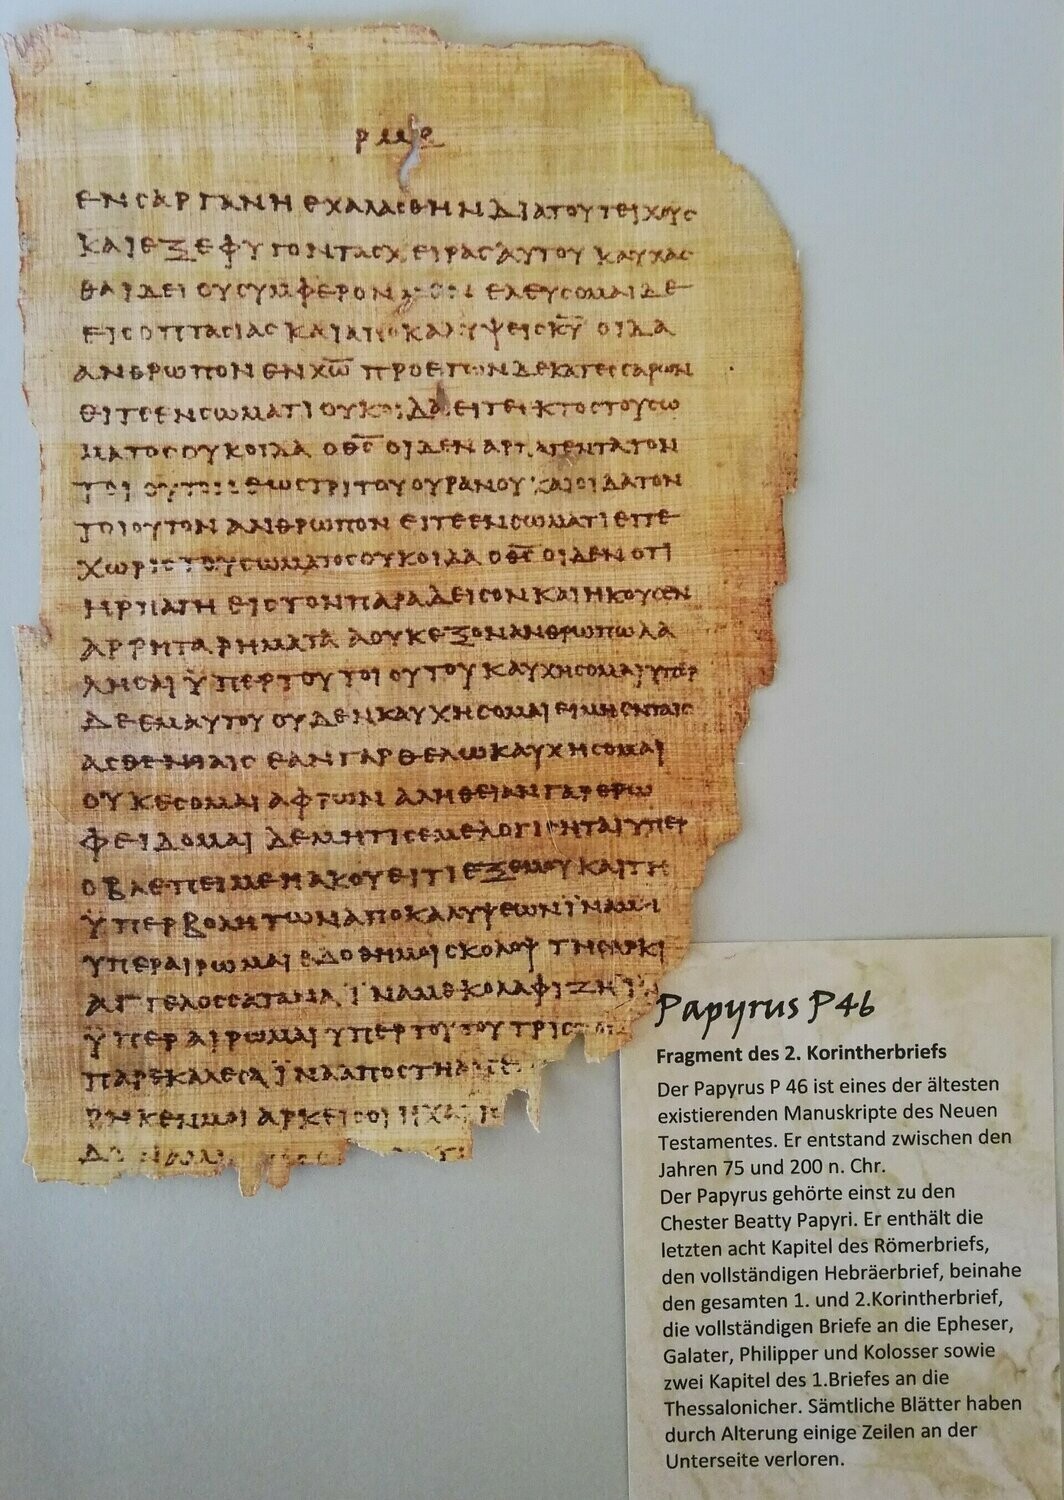 ΕΝ ΣΑΡΓΑΝΗ ΕΧΑΛΑΣΘΗΝ ΔΙΑ ΤΟΥ ΤΕΙΧΟΥΣ
ΚΑΙ ΕΞΕΦΥΓΟΝ ΤΑΣ ΧΕΙΡΑΣ ΑΥΤΟΥ ΚΑΥΧΑΣ
ΘΑΙ ΔΕΙ ΟΥ ΣΥΜΦΕΡΟΝ ΕΛΕΥΣΟΜΑΙ ΔΕ
ΕΙΣ ΟΠΤΑΣΙΑΣ ΚΑΙ ΑΠΟΚΑΛΥΨΕΙΣ Κ̅Υ̅ ΟΙΔΑ
ΑΝΘΡΩΠΟΝ ΕΝ Χ̅Ω̅ ΠΡΟ ΕΤΩΝ ΔΕΚΑΤΕΣΣΑΡΩΝ
ΕΙΤΕ ΕΝ ΣΩΜΑΤΙ ΟΥΚ ΟΙΔΑ ΕΙΤΕ ΕΚΤΟΣ ΤΟΥ ΣΩ
ΜΑΤΟΣ ΟΥΚ ΟΙΔΑ Ο Θ̅Σ̅ ΟΙΔΕΝ ΑΡΠΑΓΕΝΤΑ ΤΟΝ
ΤΟΙΟΥΤΟΝ ΕΩΣ ΤΡΙΤΟΥ ΟΥΡΑΝΟΥ ΚΑΙ ΟΙΔΑ ΤΟΝ
ΤΟΙΟΥΤΟΝ ΑΝΘΡΩΠΟΝ ΕΙΤΕ ΕΝ ΣΩΜΑΤΙ ΕΙΤΕ
ΧΩΡΙΣ ΤΟΥ ΣΩΜΑΤΟΣ ΟΥΚ ΟΙΔΑ Ο Θ̅Σ̅ ΟΙΔΕΝ ΟΤΙ
ΗΡΠΑΓΗ ΕΙΣ ΤΟΝ ΠΑΡΑΔΕΙΣΟΝ ΚΑΙ ΗΚΟΥΣΕΝ
ΑΡΡΗΤΑ ΡΗΜΑΤΑ Α ΟΥΚ ΕΞΟΝ ΑΝΘΡΩΠΩ ΛΑ
ΛΗΣΑΙ ΫΠΕΡ ΤΟΥ ΤΟΙΟΥΤΟΥ ΚΑΥΧΗΣΟΜΑΙ ΥΠΕΡ
ΔΕ ΕΜΑΥΤΟΥ ΟΥΔΕΝ ΚΑΥΧΗΣΟΜΑΙ ΕΙ ΜΗ ΕΝ ΤΑΙΣ
ΑΣΘΕΝΕΙΑΙΣ ΕΑΝ ΓΑΡ ΘΕΛΩ ΚΑΥΧΗΣΟΜΑΙ
ΟΥΚ ΕΣΟΜΑΙ ΑΦΡΩΝ ΑΛΗΘΕΙΑΝ ΓΑΡ ΕΡΩ
ΦΕΙΔΟΜΑΙ ΔΕ ΜΗ ΤΙΣ ΕΜΕ ΛΟΓΙΣΗΤΑΙ ΥΠΕΡ
Ο ΒΛΕΠΕΙ ΜΕ Η ΑΚΟΥΕΙ ΤΙ ΕΞ ΕΜΟΥ ΚΑΙ ΤΗ
ΫΠΕΡΒΟΛΗ ΤΩΝ ΑΠΟΚΑΛΥΨΕΩΝ ΪΝΑ ΜΗ
ΥΠΕΡΑΙΡΩΜΑΙ ΕΔΟΘΗ ΜΟΙ ΣΚΟΛΟΨ ΤΗ ΣΑΡΚΙ
ΑΓΓΕΛΟΣ ΣΑΤΑΝΑ ΪΝΑ ΜΕ ΚΟΛΑΦΙΖΗ
ΥΠΕΡΑΙΡΩΜΑΙ ΥΠΕΡ ΤΟΥΤΟΥ ΤΡΙΣ
ΠΑΡΕΚΑΛΕΣΑ ΪΝΑ ΑΠΟΣΤΗ
ΚΕΝ ΜΟΙ ΑΡΚΕΙ ΣΟΙ Η ΧΑΡΙΣ
Papyrus P46
Fragment des 2. Korintherbriefs
Der Papyrus P 46 ist eines der ältesten
existierenden Manuskripte des Neuen
Testamentes. Er entstand zwischen den
Jahren 75 und 200 n. Chr.
Der Papyrus gehörte einst zu den
Chester Beatty Papyri. Er enthält die
letzten acht Kapitel des Römerbriefs,
den vollständigen Hebräerbrief, beinahe
den gesamten 1. und 2.Korintherbrief,
die vollständigen Briefe an die Epheser,
Galater, Philipper und Kolosser sowie
zwei Kapitel des 1.Briefes an die
Thessalonicher. Sämtliche Blätter haben
durch Alterung einige Zeilen an der
Unterseite verloren.